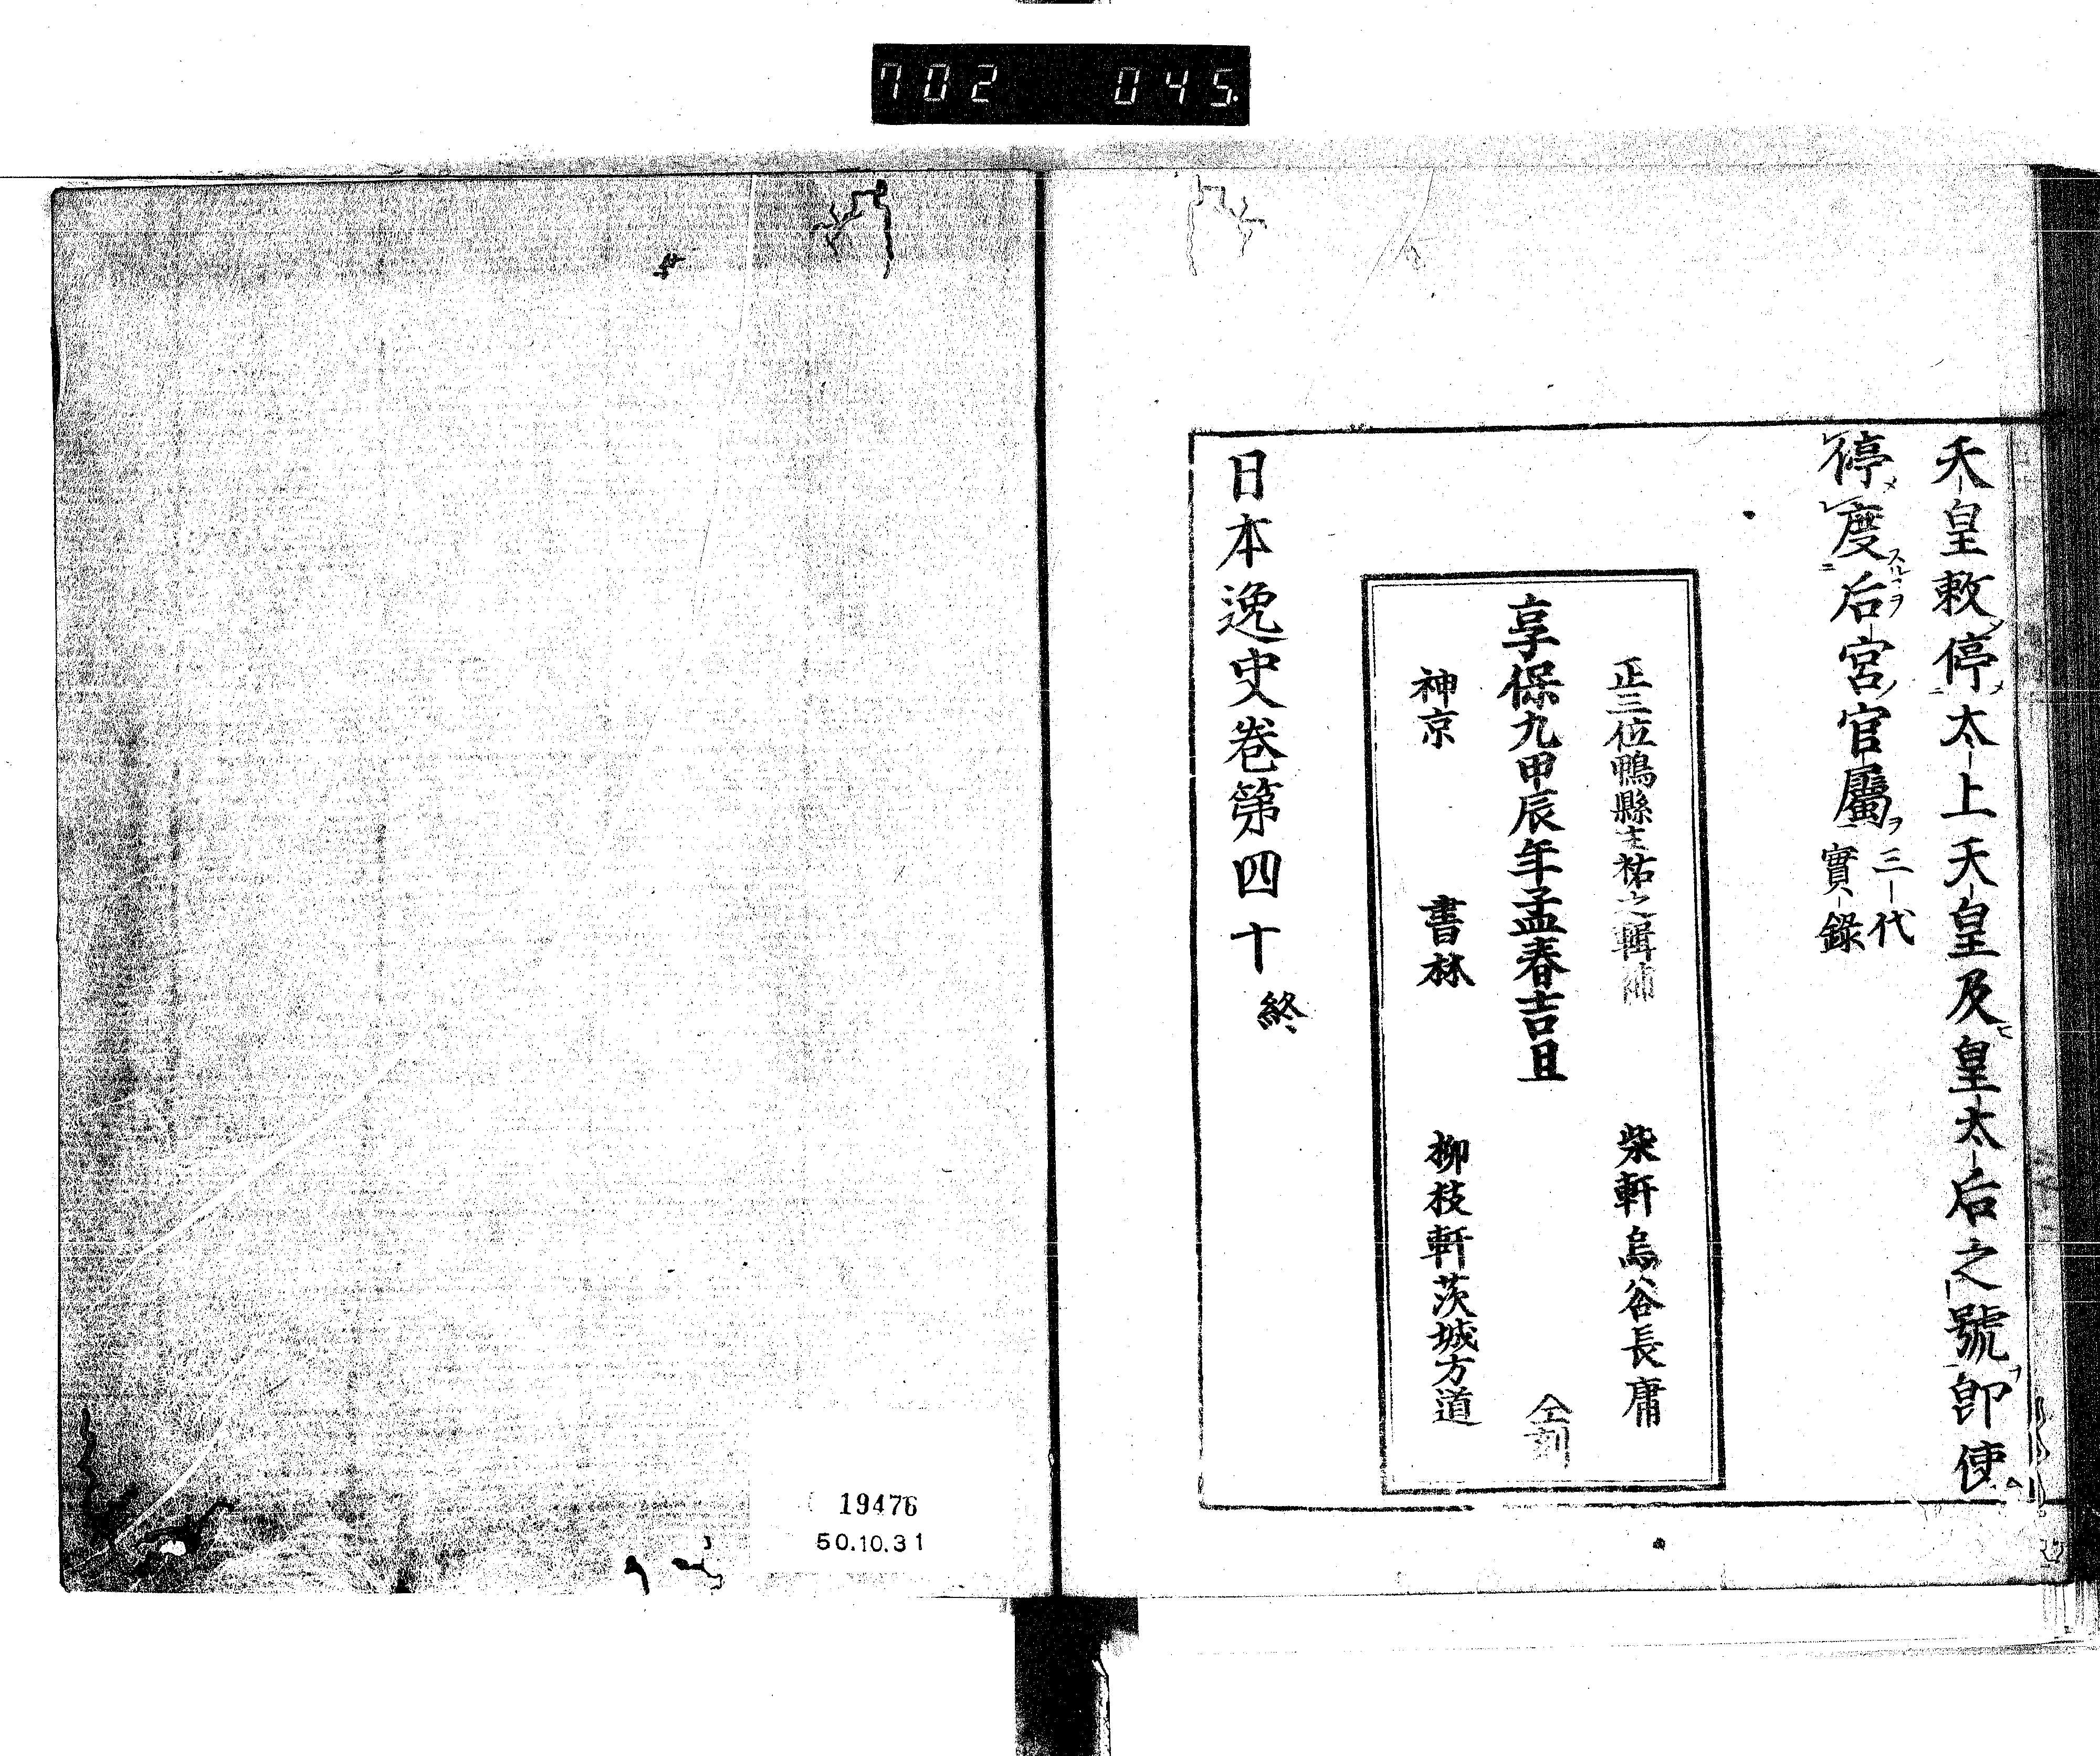 702 045.
天皇敕停太上天皇及皇太后之號卽使
停度后宮官屬三代
實錄
正三位鴨縣主祐之輯 柴軒烏谷長庸
享保九甲辰年孟春吉旦 仝刻
神京 書林 柳枝軒茨城方道
日本逸史卷第四十終
19476
50.10.31